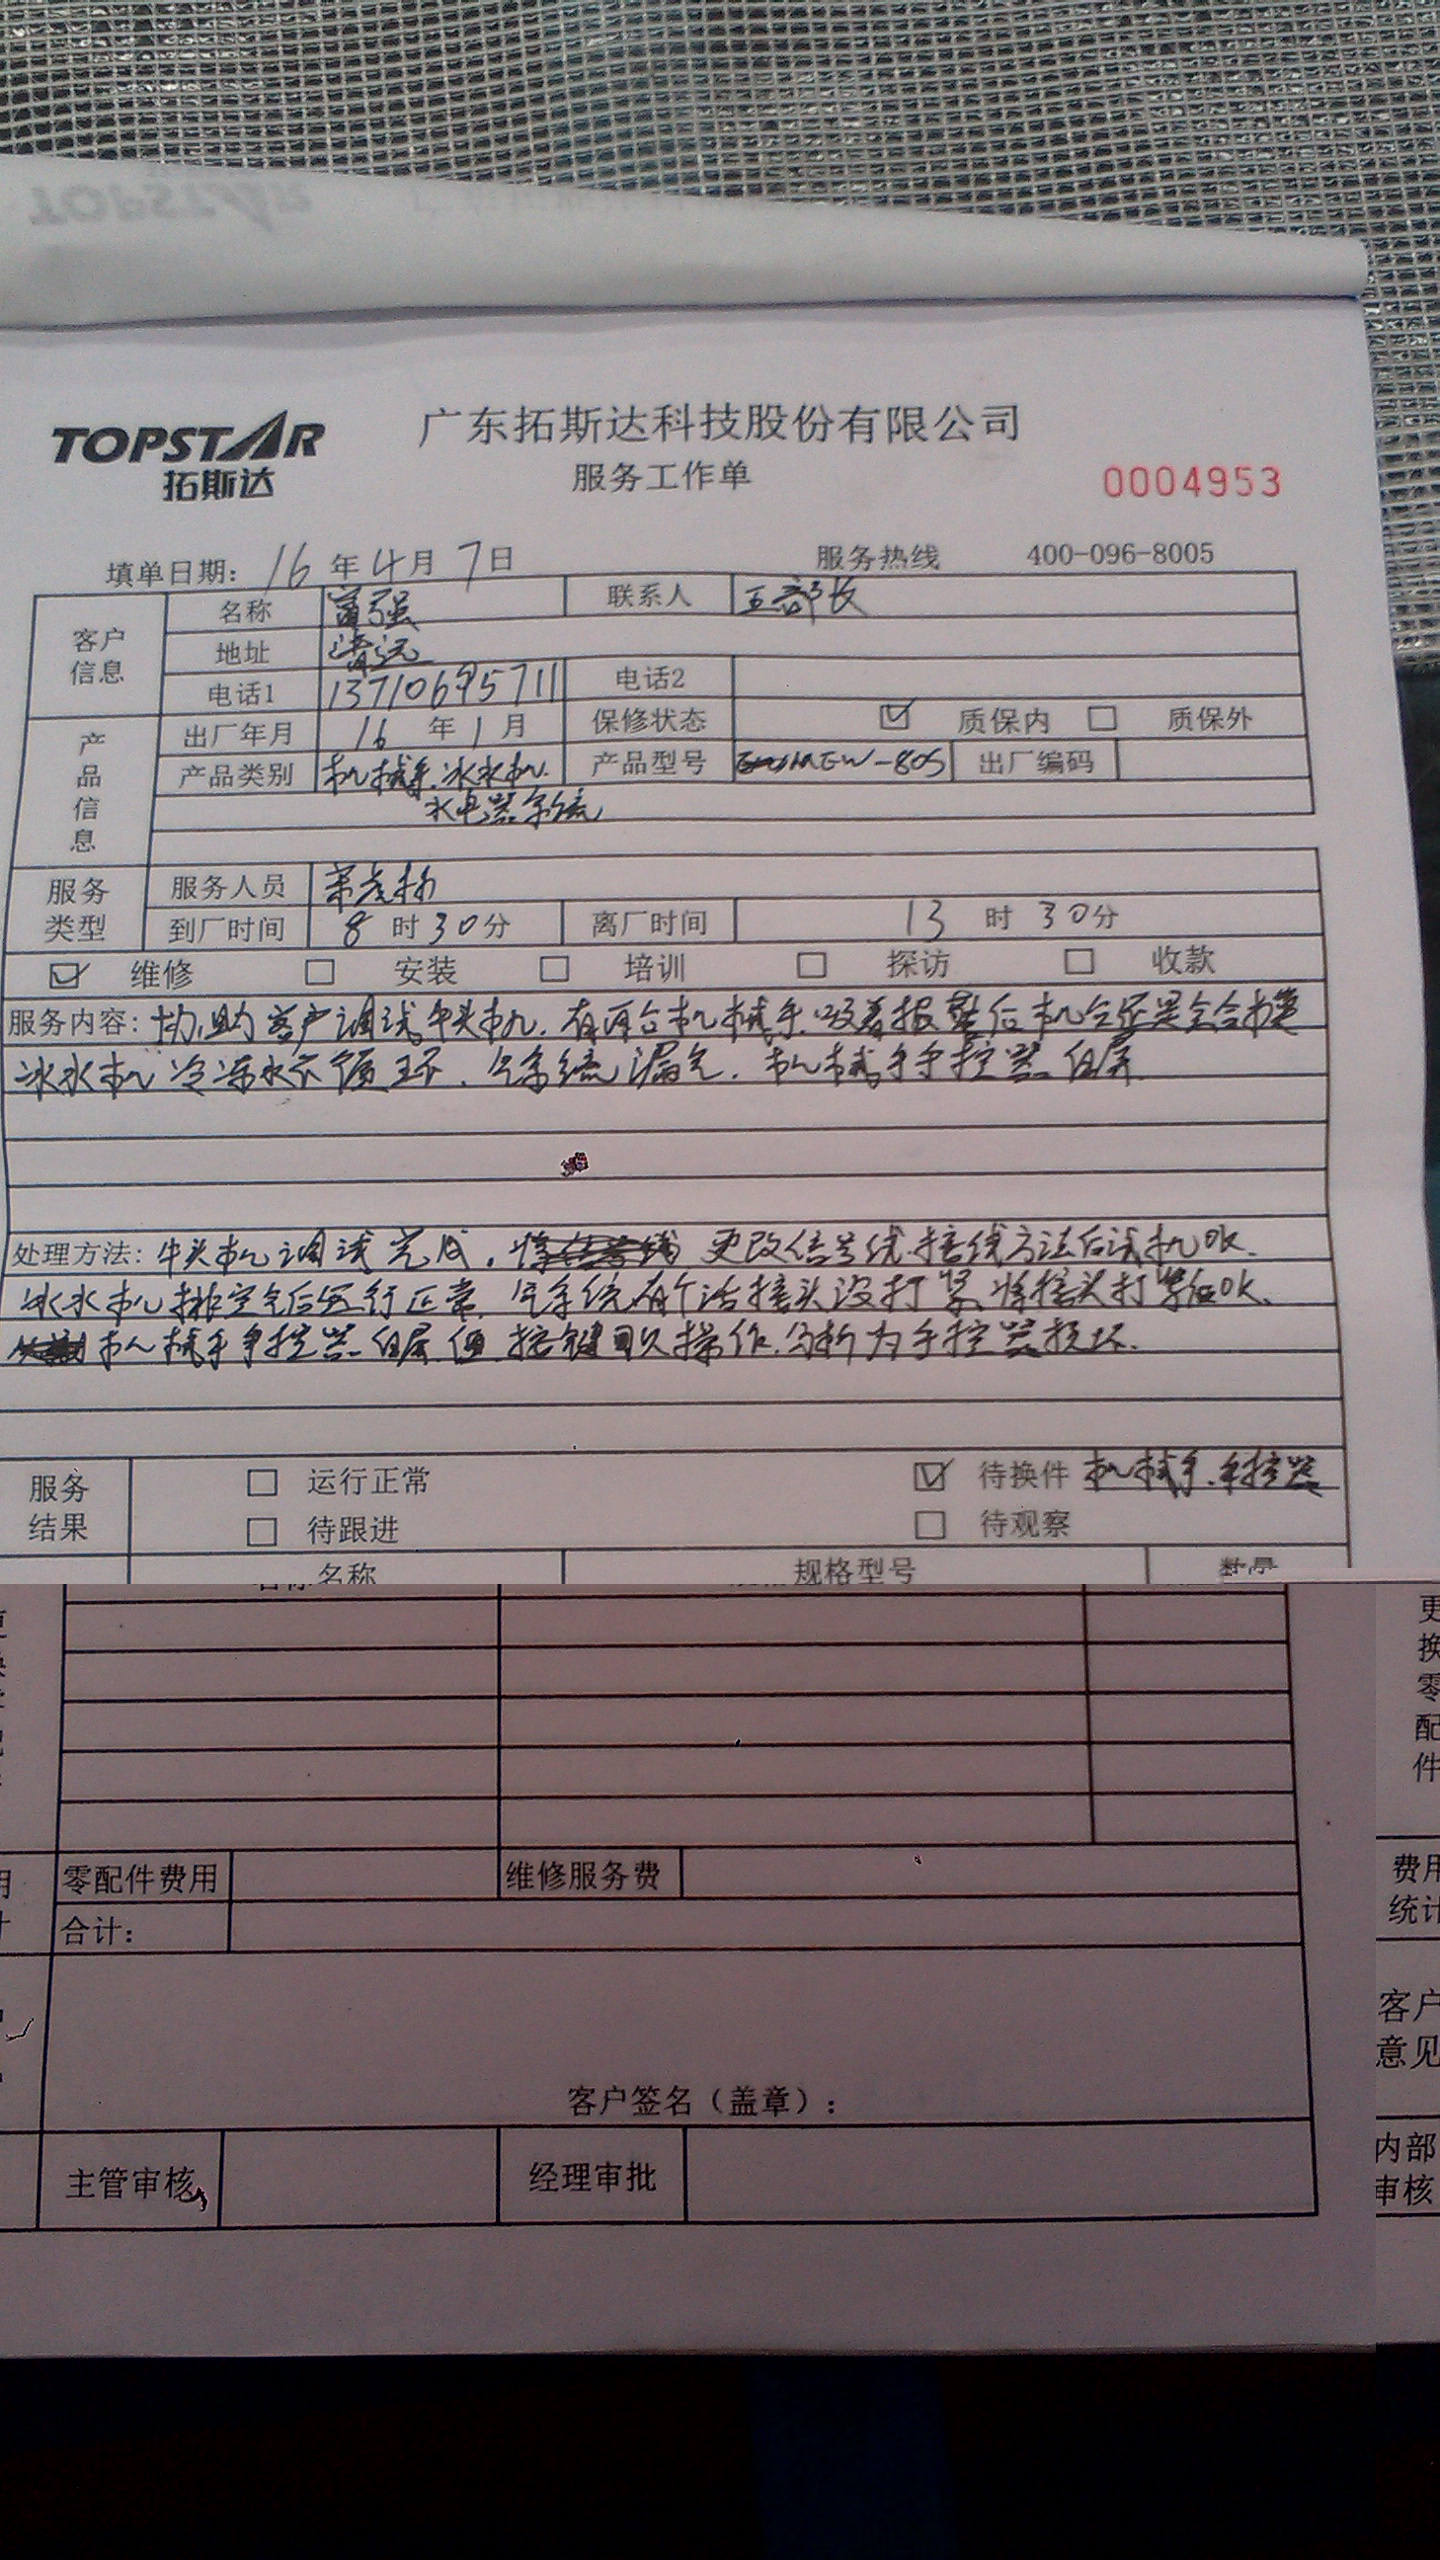 TOPSTAR
拓斯达
广东拓斯达科技股份有限公司
服务工作单
0004953
填单日期: 16 年 4 月 7 日 服务热线 400-096-8005
客户信息
名称 富强 联系人 王部长
地址 清远
电话1 13710695711 电话2
产品信息
出厂年月 16 年 1 月 保修状态 质保内 质保外
产品类别 机械手.冰水机. 产品型号 MEW-80S 出厂编码
水电器系统
服务类型
服务人员
到厂时间 8 时 30 分 离厂时间 13 时 30 分
维修 安装 培训 探访 收款
服务内容: 协助客户调试牛头机. 有两台机械手.吸着报警后机台还是会合模
冰水机冷冻水不循环. 气系统漏气. 机械手手控器白屏.
处理方法: 牛头机调试完成. 更改信号线接线方法后试机OK.
冰水机排空气后运行正常. 气系统有个活接头没打紧.将接头打紧后OK.
机械手手控器白屏.但按键可以操作.分析为手控器损坏.
服务结果
运行正常 待换件 机械手.手控器
待跟进 待观察
名称 规格型号 数量
更换零配件
零配件费用 维修服务费
费用统计
合计:
客户意见
客户签名（盖章）:
主管审核 经理审批
内部审核